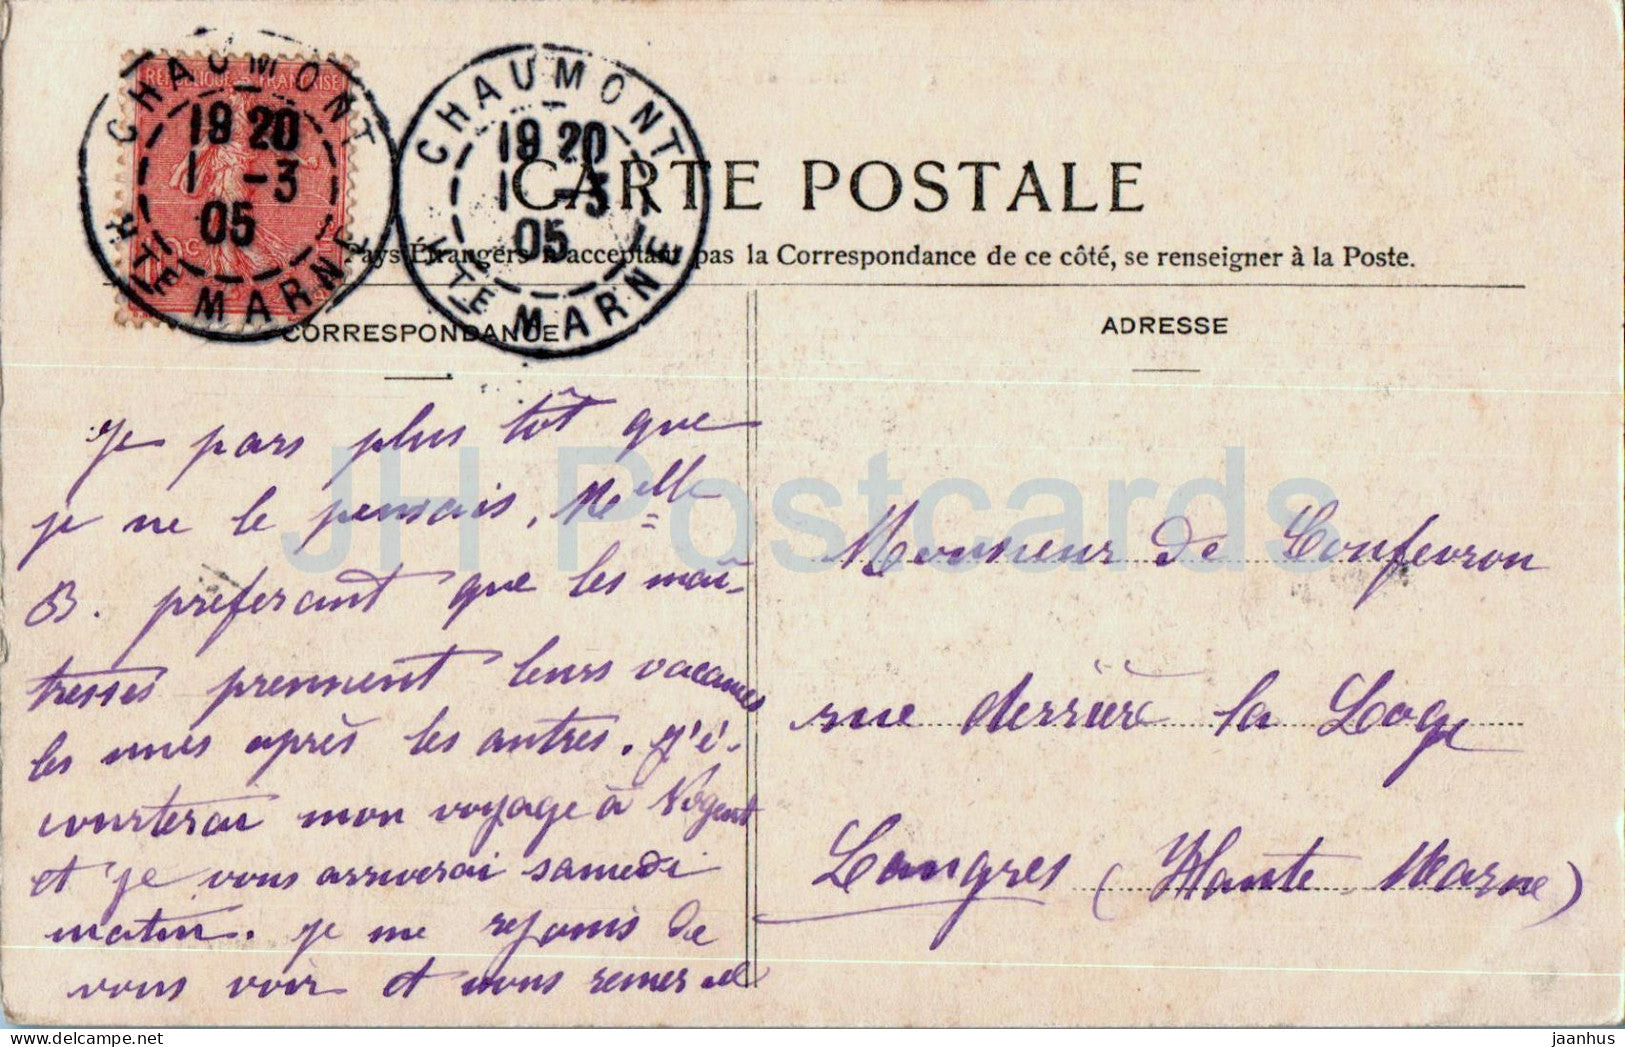 RÉPUBLIQUE FRANÇAISE
CHAUMONT
19 20
1 -3
05
HTE MARNE
CHAUMONT
19 20
1 -3
05
HTE MARNE
CARTE POSTALE
Pays Étrangers n'acceptant pas la Correspondance de ce côté, se renseigner à la Poste.
CORRESPONDANCE
ADRESSE
Je pars plus tôt que
je ne le pensais, Melle
B. préferant que les maî-
tresses prennent leurs vacances
les unes après les autres. J'é-
courterai mon voyage à Nogent
et je vous arriverai samedi
matin. Je me rejouis de
vous voir et vous remercie
Monsieur de Confevron
rue derrière la Loge
Langres (Haute Marne)
JH Postcards
www.delcampe.net
jaanhus